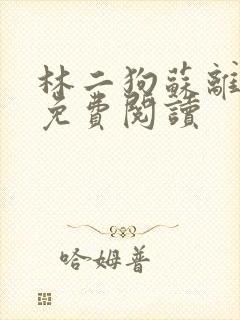 林二狗蘇離
免費閱讀
哈姆普